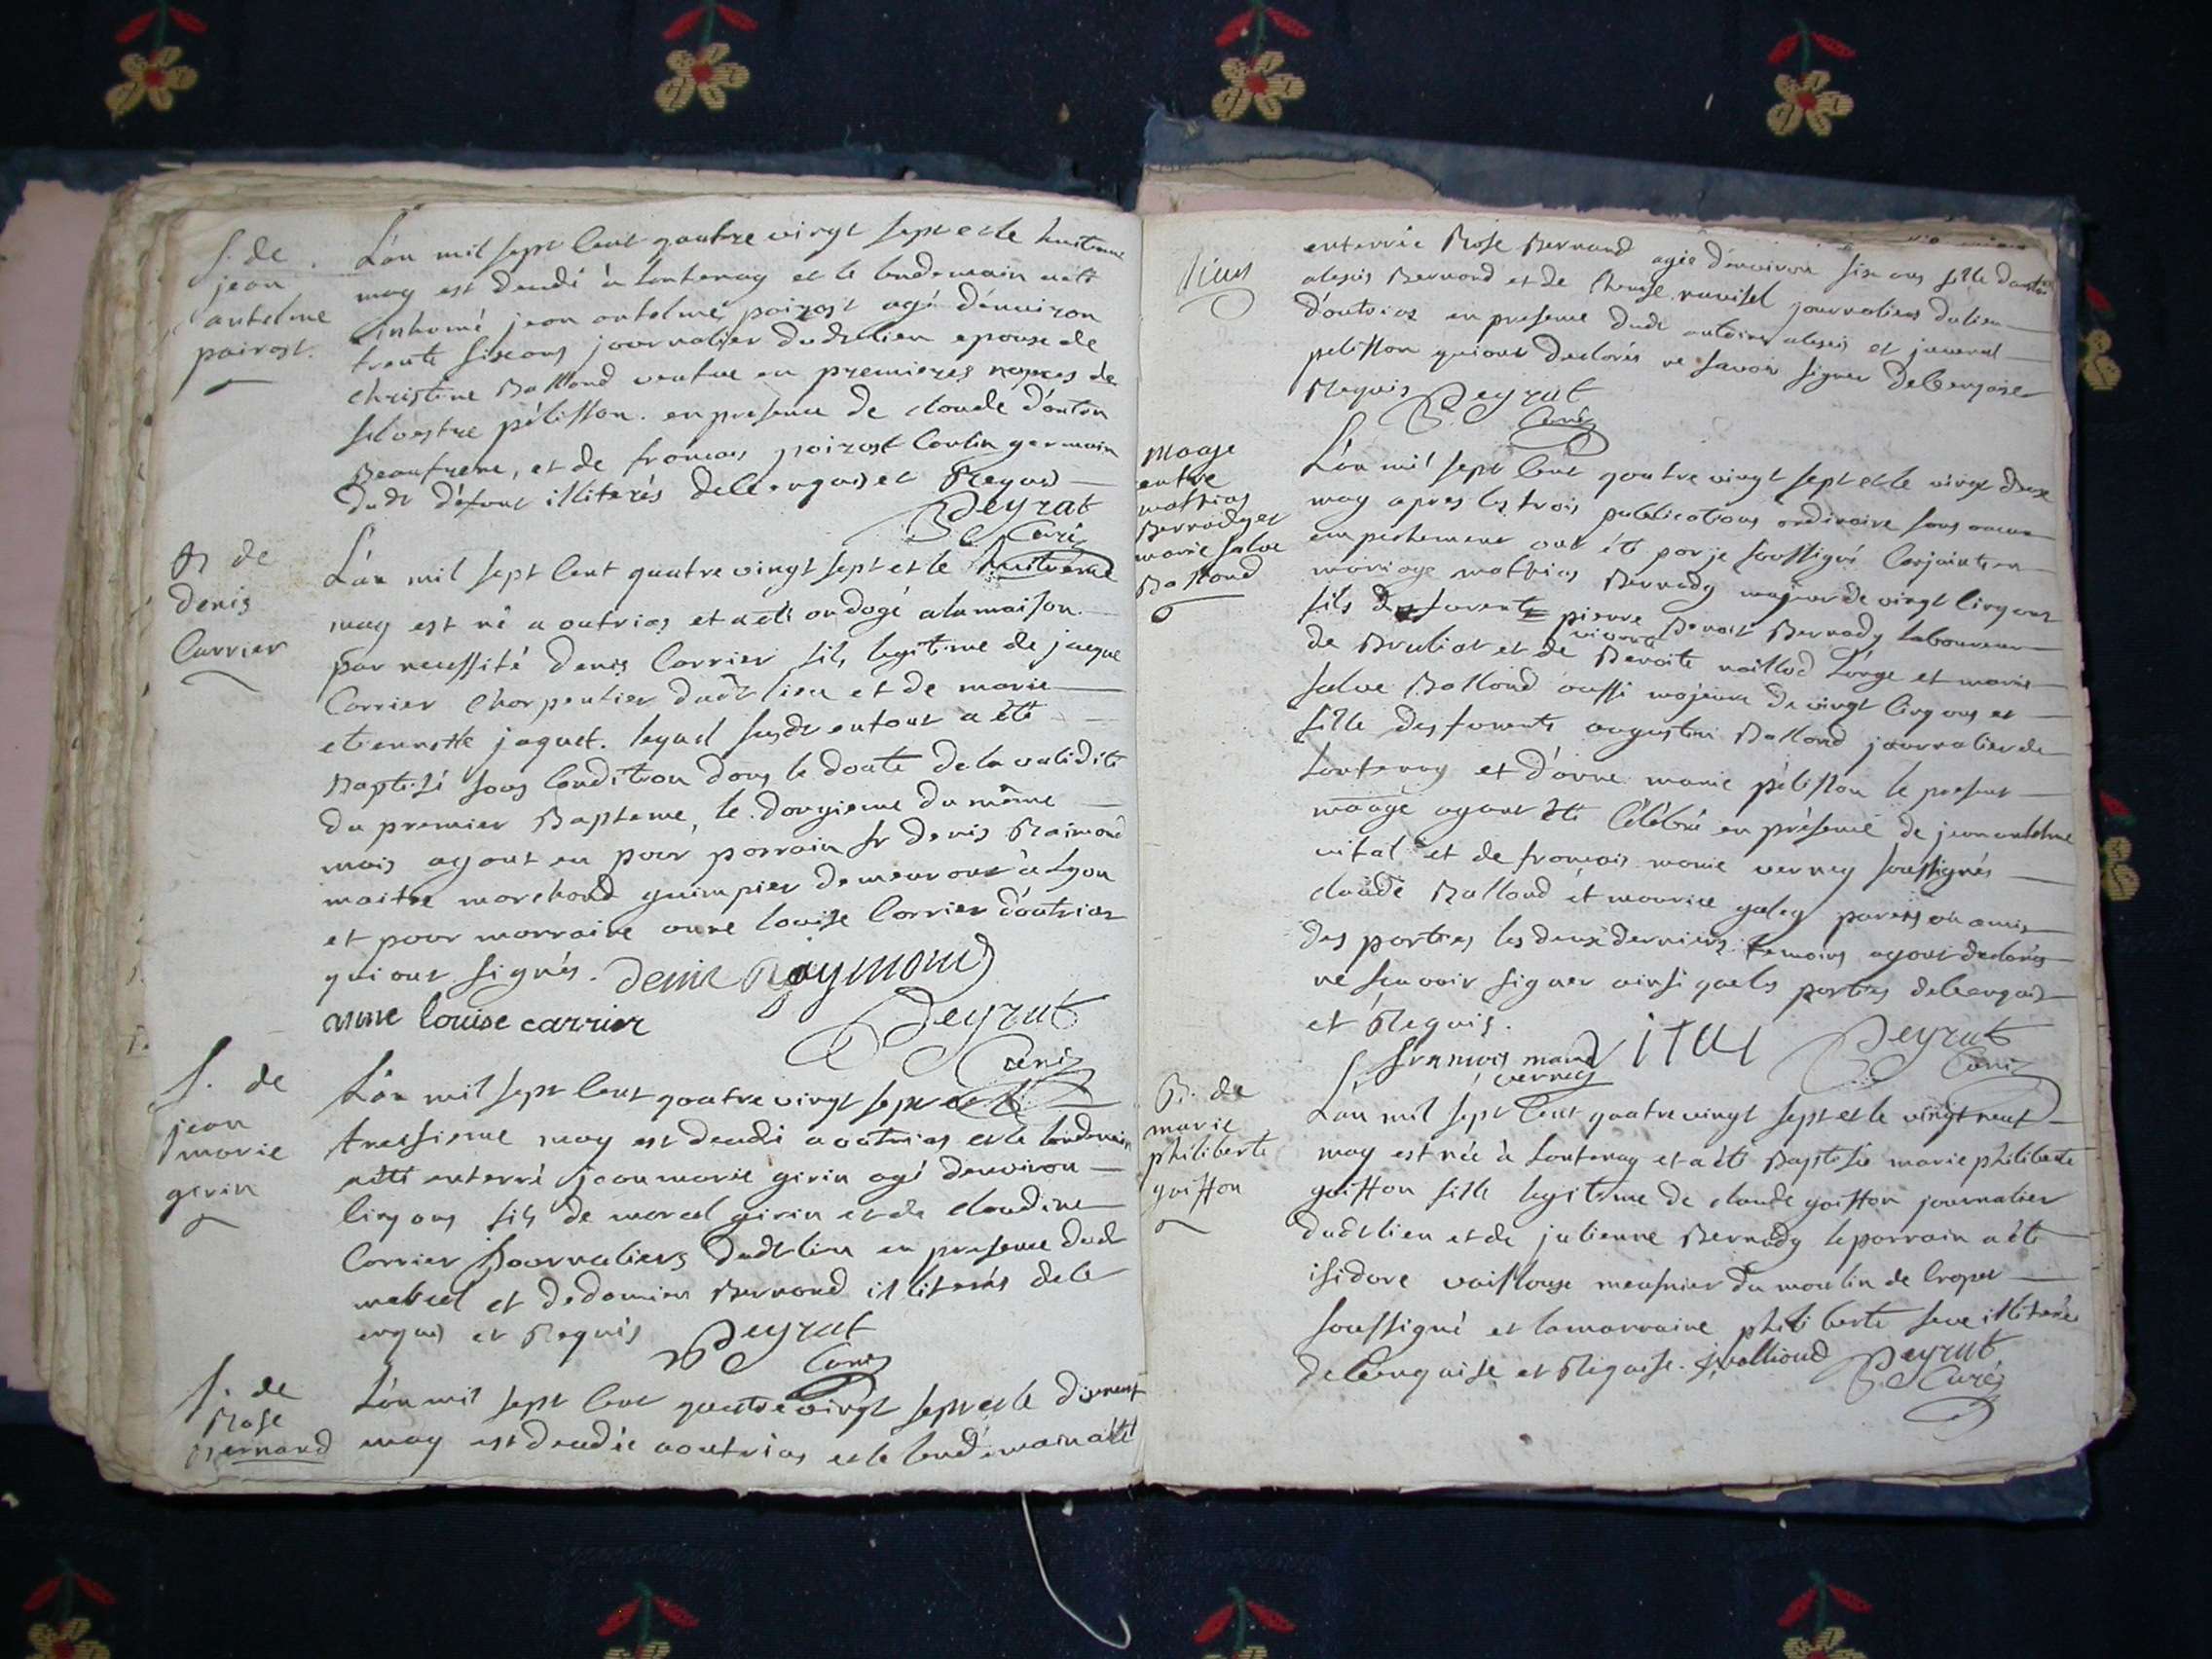 S. de
jean
antelme
poirost.
L'an mil sept cent quatre vingt sept et le huitieme
may est decedé à lontenay et le lendemain a eté
inhumé jean antelme poirost agé d'environ
trente six ans journalier dudt lieu epoux de
christine Balland veuve en premieres nopces de
silvestre pélisson. en presence de claude d'antin
Beaufrere, et de francois poirost cousin germain
dudt défunt illiterés de ce enquis et Requis
Peyrat
Curé
B de
denis
Carrier
L'an mil sept cent quatre vingt sept et le huitieme
may est né a outrias et a eté ondoyé a la maison
par necessité denis Carrier fils legitime de jaque
Carrier charpentier dudt lieu et de marie
etiennette jaquet. lequel susdt enfant a eté
Baptisé sous condition dans le doute de la validité
du premier Bapteme, le douzieme du même
mois ayant eu pour parrain sr denis Raimond
maitre marchand guimpier demeurant à Lyon
et pour marraine anne louise Carrier d'outrias
qui ont signés. denis Raymond
anne louise carrier
Peyrat
Curé
S. de
jean
marie
girin
L'an mil sept cent quatre vingt sept et le
treisieme may est decedé a outrias et le lendemain
a eté enterré jean marie girin agé d'environ
cinq ans fils de marcel girin et de claudine
Carrier journaliers dudt lieu en presence dudt
marcel et de damien Bernand illiterés de ce
enquis et Requis Peyrat
Curé
S. de
Rose
Bernand
L'an mil sept cent quatre vingt sept et le dixneuf
may est decedée a outrias et le lendemain a eté
enterrée Rose Bernand agée d'environ six ans fille d'antoine
alexis Bernand et de journaliers du lieu
d'outrias en presence dudt antoine alexis et juvenal
pelisson qui ont declarés ne savoir signer de ce enquis
Requis Peyrat
Curé
Maage
entre
mathias
Bernady et
marie salve
Balland
L'an mil sept cent quatre vingt sept et le vingt deux
may apres les trois publications ordinaire sans aucun
empechement ont été par je soussigné conjoints en
mariage mathias Bernady majeur de vingt cinq ans
fils de pierre Benoit Bernady laboureur
de Bruliat et de vivante Benoite Lorge et marie
salve Balland aussi majeure de vingt cinq ans et
fille des furents augustin Balland journalier de
Lontenay et d'anne marie pélisson le present
maage ayant été célébré en présence de jean antelme
vital et de francois marie verney soussignés
claude Balland et maurice galey parens ou amis
des parties les deux derniers temoins ayant declarés
ne scavoir signer ainsi que les parties de ce enquis
et Requis.
francois marie verney Peyrat
Curé
B. de
marie
philiberte
goiffon
L'an mil sept cent quatre vingt sept et le vingt neuf
may est née à Lontenay et a été Baptisée marie philiberte
goiffon fille legitime de claude goiffon journalier
dudt lieu et de julienne Bernady le parrain a été
isidore meusnier du moulin de
soussigné et la marraine philiberte illiterée
de ce enquise et Requise. Peyrat
Curé